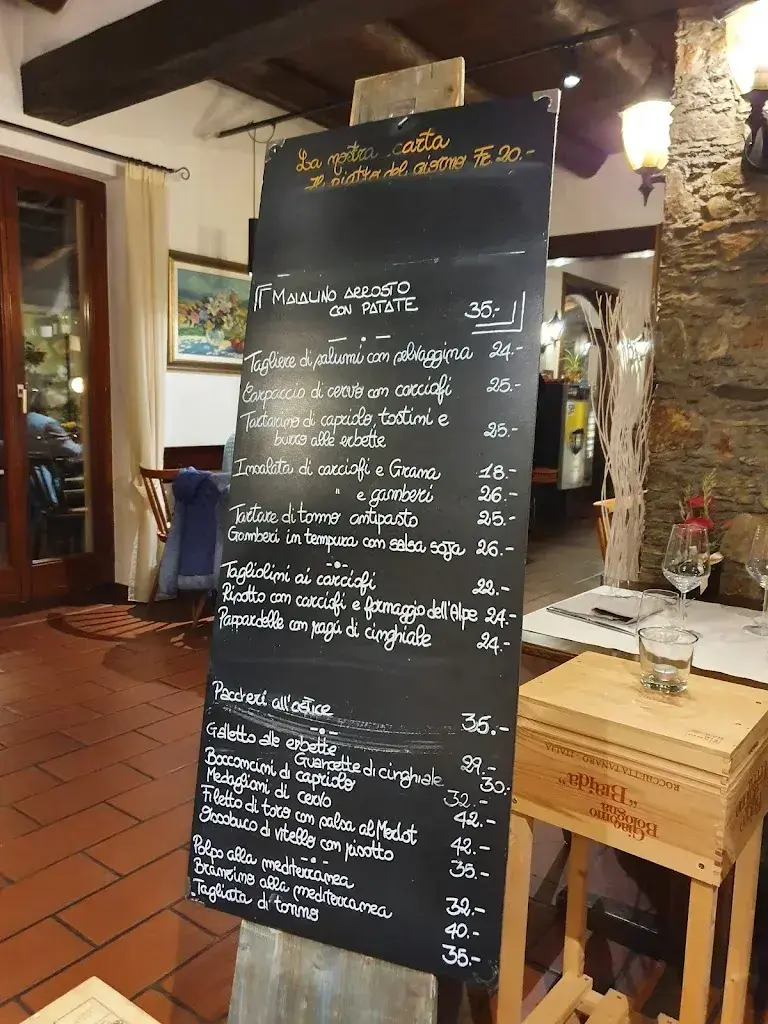 La nostra carta
Il piatto del giorno Fr. 20.-
MAIALINO ARROSTO
CON PATATE 35.-
Tagliere di salumi con selvaggina 24.-
Carpaccio di cervo con carciofi 25.-
Tartarino di capriolo, tostini e
burro alle erbette 25.-
Insalata di carciofi e Grana 18.-
" e gamberi 26.-
Tartare di tonno antipasto 25.-
Gamberi in tempura con salsa soja 26.-
Tagliolini ai carciofi 22.-
Risotto con carciofi e formaggio dell'Alpe 24.-
Pappardelle con ragú di cinghiale 24.-
Paccheri all'astice 35.-
Galletto alle erbette 29.-
Guancette di cinghiale 30.-
Bocconcini di capriolo 32.-
Medaglioni di cervo 42.-
Filetto di toro con salsa al Merlot 42.-
Ossobuco di vitello con risotto 35.-
Polpo alla mediterranea 32.-
Branzino alla mediterranea 40.-
Tagliata di tonno 35.-
ROCCHETTA TANARO - ITALIA
"Braida"
Giacomo
Bologna